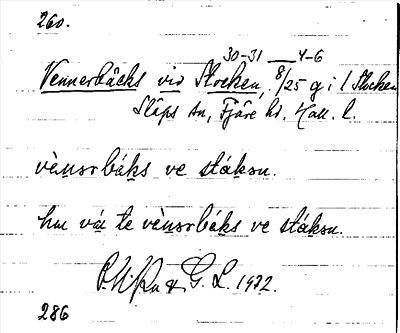 260.
30-31 4-6
Vennerbäcks vid Stocken, 8/25 g i l Stocken
Släps sn, Fjäre hd. Hall. l.
vènərbáks ve stákən.
hu vá te vènərbáks ve stákən.
& G. L. 1932.
286